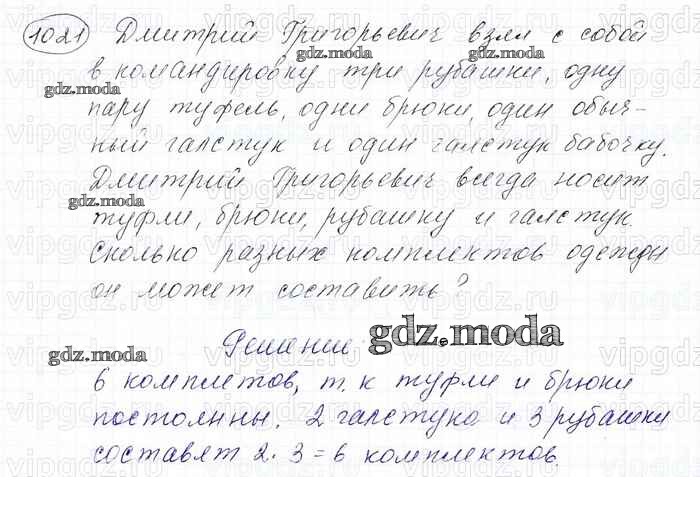 1021 Дмитрий Григорьевич взял с собой
gdz.moda gdz.moda
в командировку три рубашки, одну
gdz.moda gdz.moda
пару туфель, одни брюки, один обыч-
ный галстук и один галстук бабочку.
Дмитрий Григорьевич всегда носит
gdz.moda gdz.moda
туфли, брюки, рубашку и галстук.
Сколько разных комплектов одежды
он может составить?
Решение
gdz.moda gdz.moda
6 комплетов, т. к туфли и брюки
постоянны. 2 галстука и 3 рубашки
составят 2 · 3 = 6 комплектов.